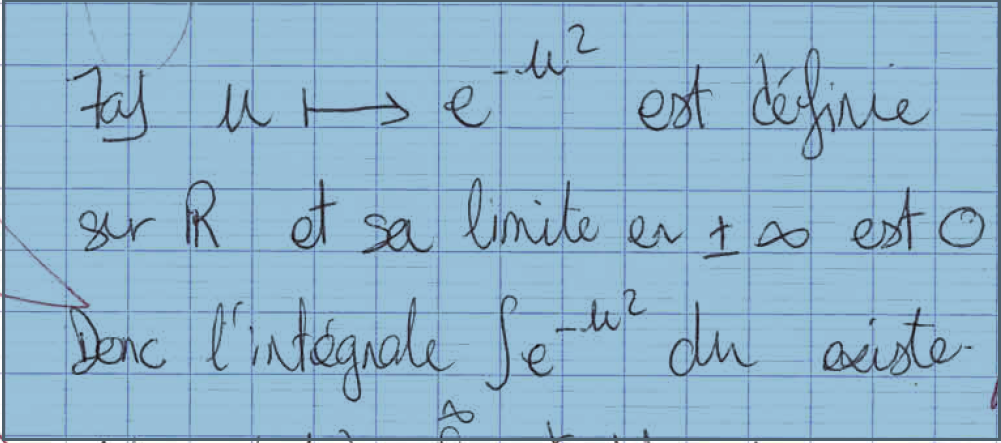 u ⟼ e^{-u^2} est définie
sur ℝ et sa limite en ± ∞ est 0
Donc l'intégrale ∫e^{-u^2} du existe.
∞